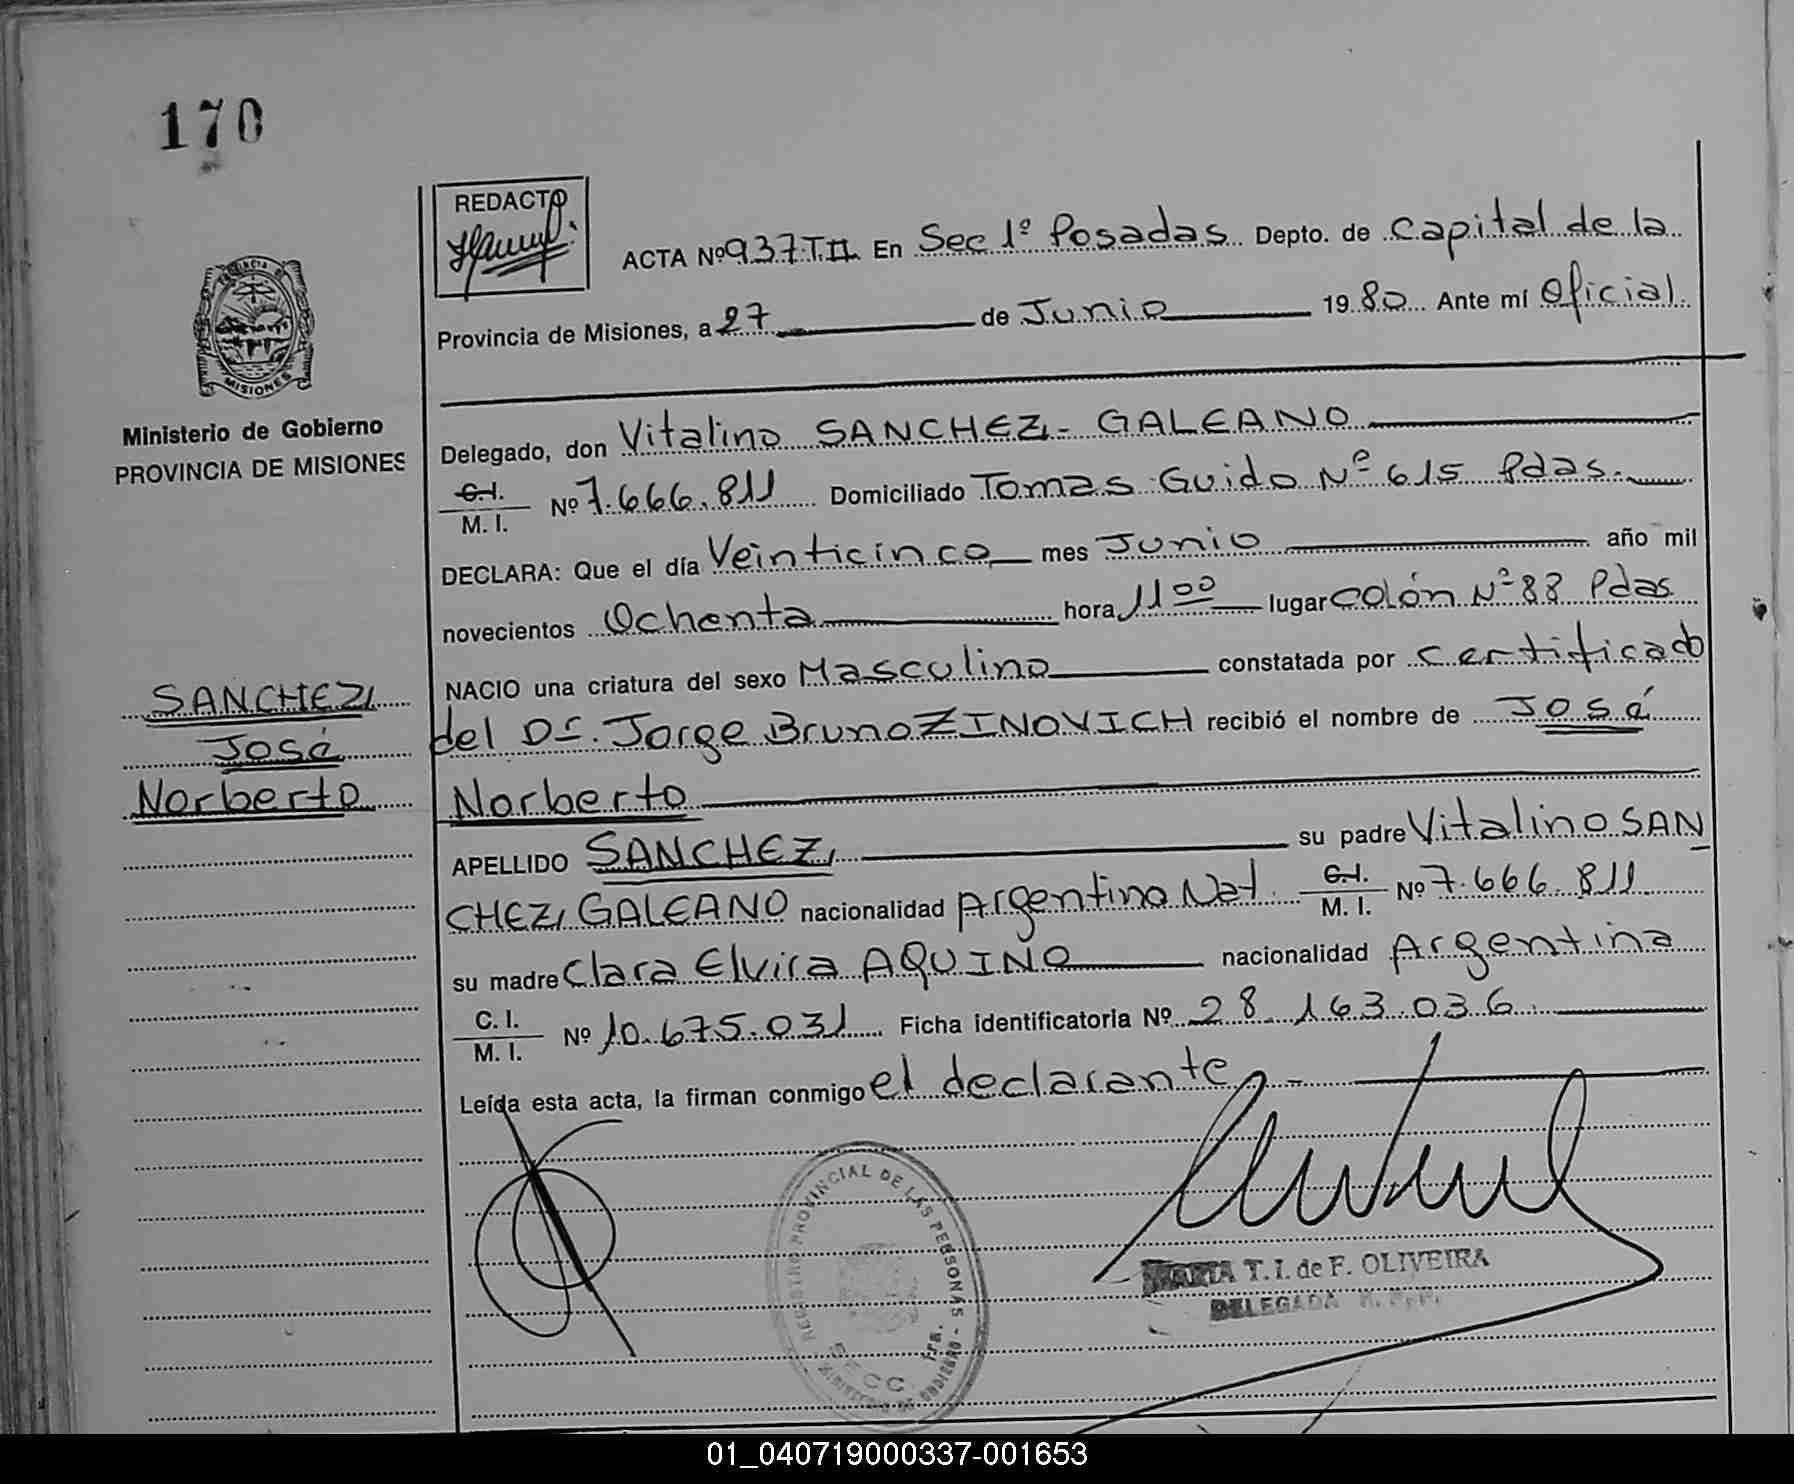 170
REDACTO
ACTA Nº 937 T.II. En Sec 1º Posadas Depto. de Capital de la
Provincia de Misiones, a 27 de Junio 1980 Ante mí Oficial
PROVINCIA DE
MISIONES
Ministerio de Gobierno
PROVINCIA DE MISIONES
Delegado, don Vitalino SANCHEZ, - GALEANO
C.I.
M. I. Nº 7.666.811 Domiciliado Tomas Guido Nº 615 Pdas.
DECLARA: Que el día Veinticinco mes Junio año mil
novecientos Ochenta hora 11 00 lugar Colón Nº 88 Pdas
NACIO una criatura del sexo Masculino constatada por certificado
SANCHEZ,
José
Norberto
del Dr. Jorge Bruno ZINOVICH recibió el nombre de José
Norberto
APELLIDO SANCHEZ, su padre Vitalino SAN
CHEZ, GALEANO nacionalidad Argentino Nat. C.I.
M. I. Nº 7.666.811
su madre Clara Elvira AQUINO nacionalidad Argentina
C. I.
M. I. Nº 10.675.031 Ficha identificatoria Nº 28.163.036.
Leída esta acta, la firman conmigo el declarante
REGISTRO PROVINCIAL DE LAS PERSONAS - MINISTERIO DE GOBIERNO
SECC. 1ra.
MARIA T. I. de F. OLIVEIRA
DELEGADA R. P. P.
01_040719000337-001653